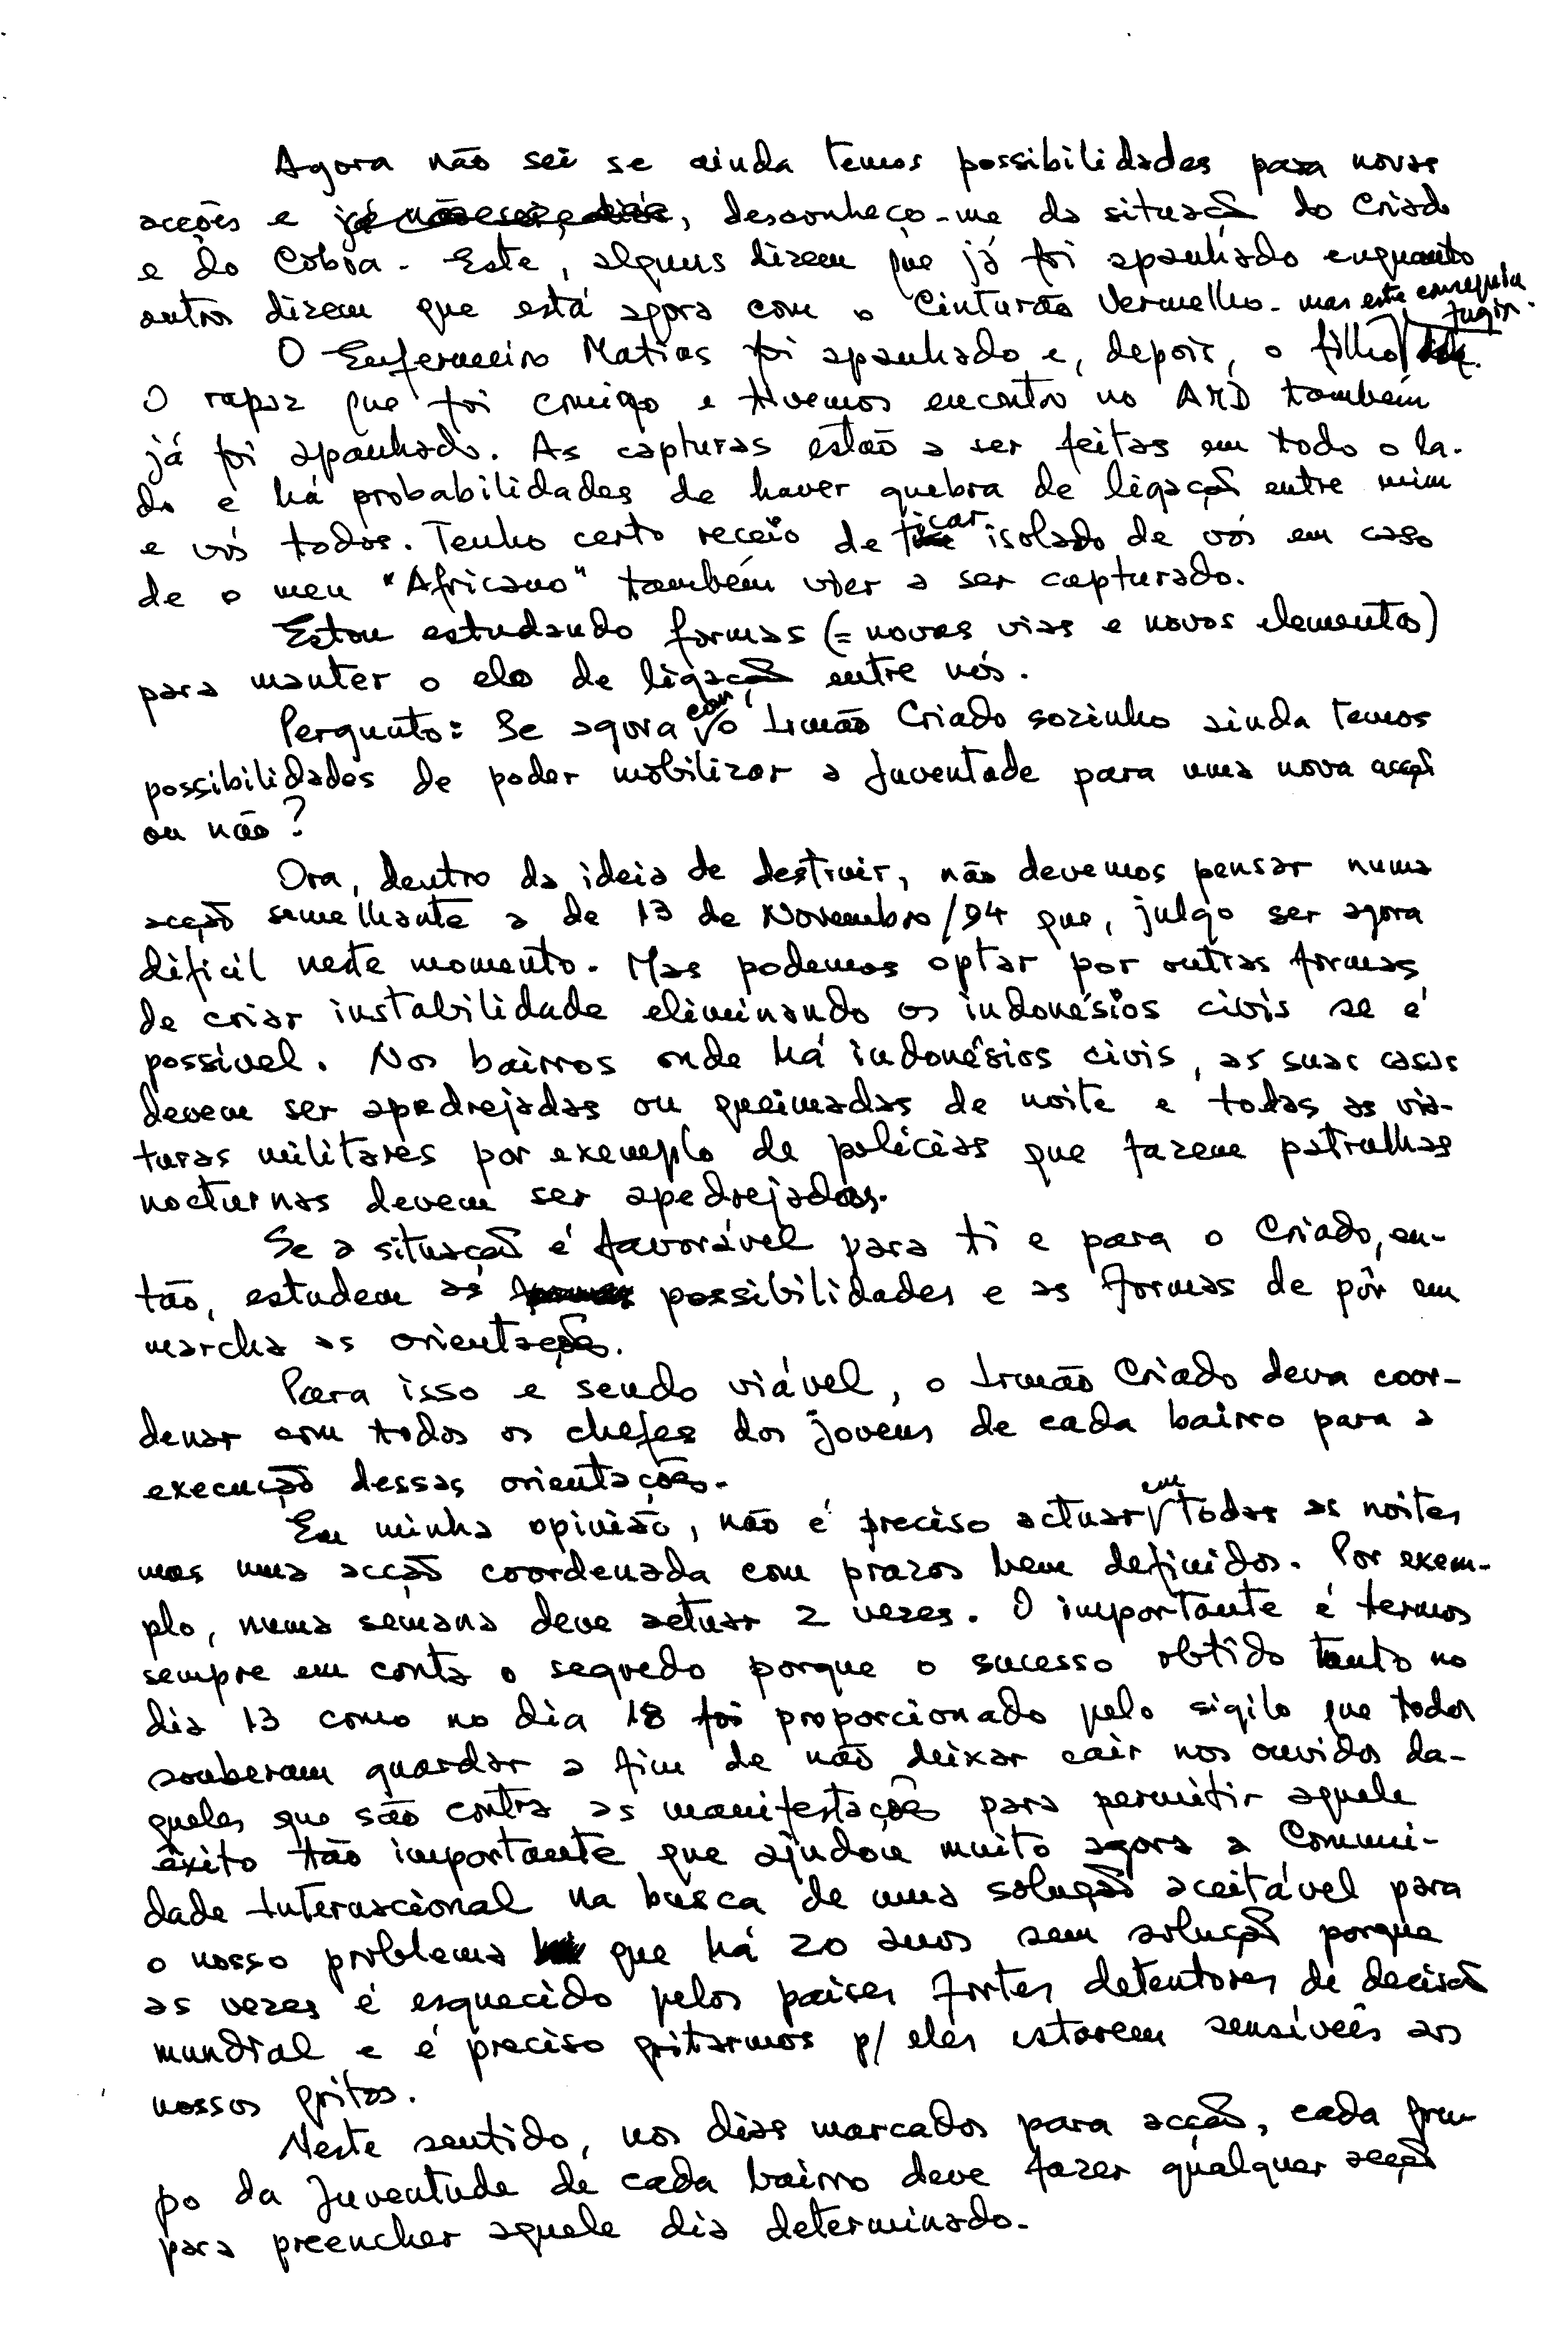 Agora não sei se ainda temos possibilidades para novas
acções e já não sei, desconheço-me da situação do Criado
e do Cobra. Este, alguns dizem que já foi apanhado enquanto
outros dizem que está agora com o Cinturão Vermelho. mas este conseguiu
fugir.
O Enfermeiro Matias foi apanhado e, depois, o filho
O rapaz que foi comigo e tivemos encontro no ARD também
já foi apanhado. As capturas estão a ser feitas em todo o la-
do e há probabilidades de haver quebra de ligação entre mim
e vós todos. Tenho certo receio de ficar isolado de vós em caso
de o meu "Africano" também vier a ser capturado.
Estou estudando formas (= novas vias e novos elementos)
para manter o elo de ligação entre nós.
Pergunto: Se agora com o Irmão Criado sozinho ainda temos
possibilidades de poder mobilizar a Juventude para uma nova acção
ou não?
Ora, dentro da ideia de destruir, não devemos pensar numa
acção semelhante a de 13 de Novembro/94 que, julgo ser agora
difícil neste momento. Mas podemos optar por outras formas
de criar instabilidade eliminando os indonésios civis se é
possível. Nos bairros onde há indonésios civis, as suas casas
devem ser apedrejadas ou queimadas de noite e todas as via-
turas militares por exemplo de polícias que fazem patrulhas
nocturnas devem ser apedrejadas.
Se a situação é favorável para ti e para o Criado, en-
tão, estudem as possibilidades e as formas de pôr em
marcha as orientações.
Para isso e sendo viável, o Irmão Criado deva coor-
denar com todos os chefes dos jovens de cada bairro para a
execução dessas orientações.
Em minha opinião, não é preciso actuar em todas as noites
mas uma acção coordenada com prazos bem definidos. Por exem-
plo, numa semana deve actuar 2 vezes. O importante é termos
sempre em conta o segredo porque o sucesso obtido tanto no
dia 13 como no dia 18 foi proporcionado pelo sigilo que todos
souberam guardar a fim de não deixar cair nos ouvidos da-
queles que são contra as manifestações para permitir aquele
êxito tão importante que ajudou muito agora a Comuni-
dade Internacional na busca de uma solução aceitável para
o nosso problema que há 20 anos sem solução porque
as vezes é esquecido pelos países fortes detentores de decisão
mundial e é preciso gritarmos p/ eles estarem sensíveis aos
nossos gritos.
Neste sentido, nos dias marcados para acção, cada gru-
po da Juventude de cada bairro deve fazer qualquer acção
para preencher aquele dia determinado.